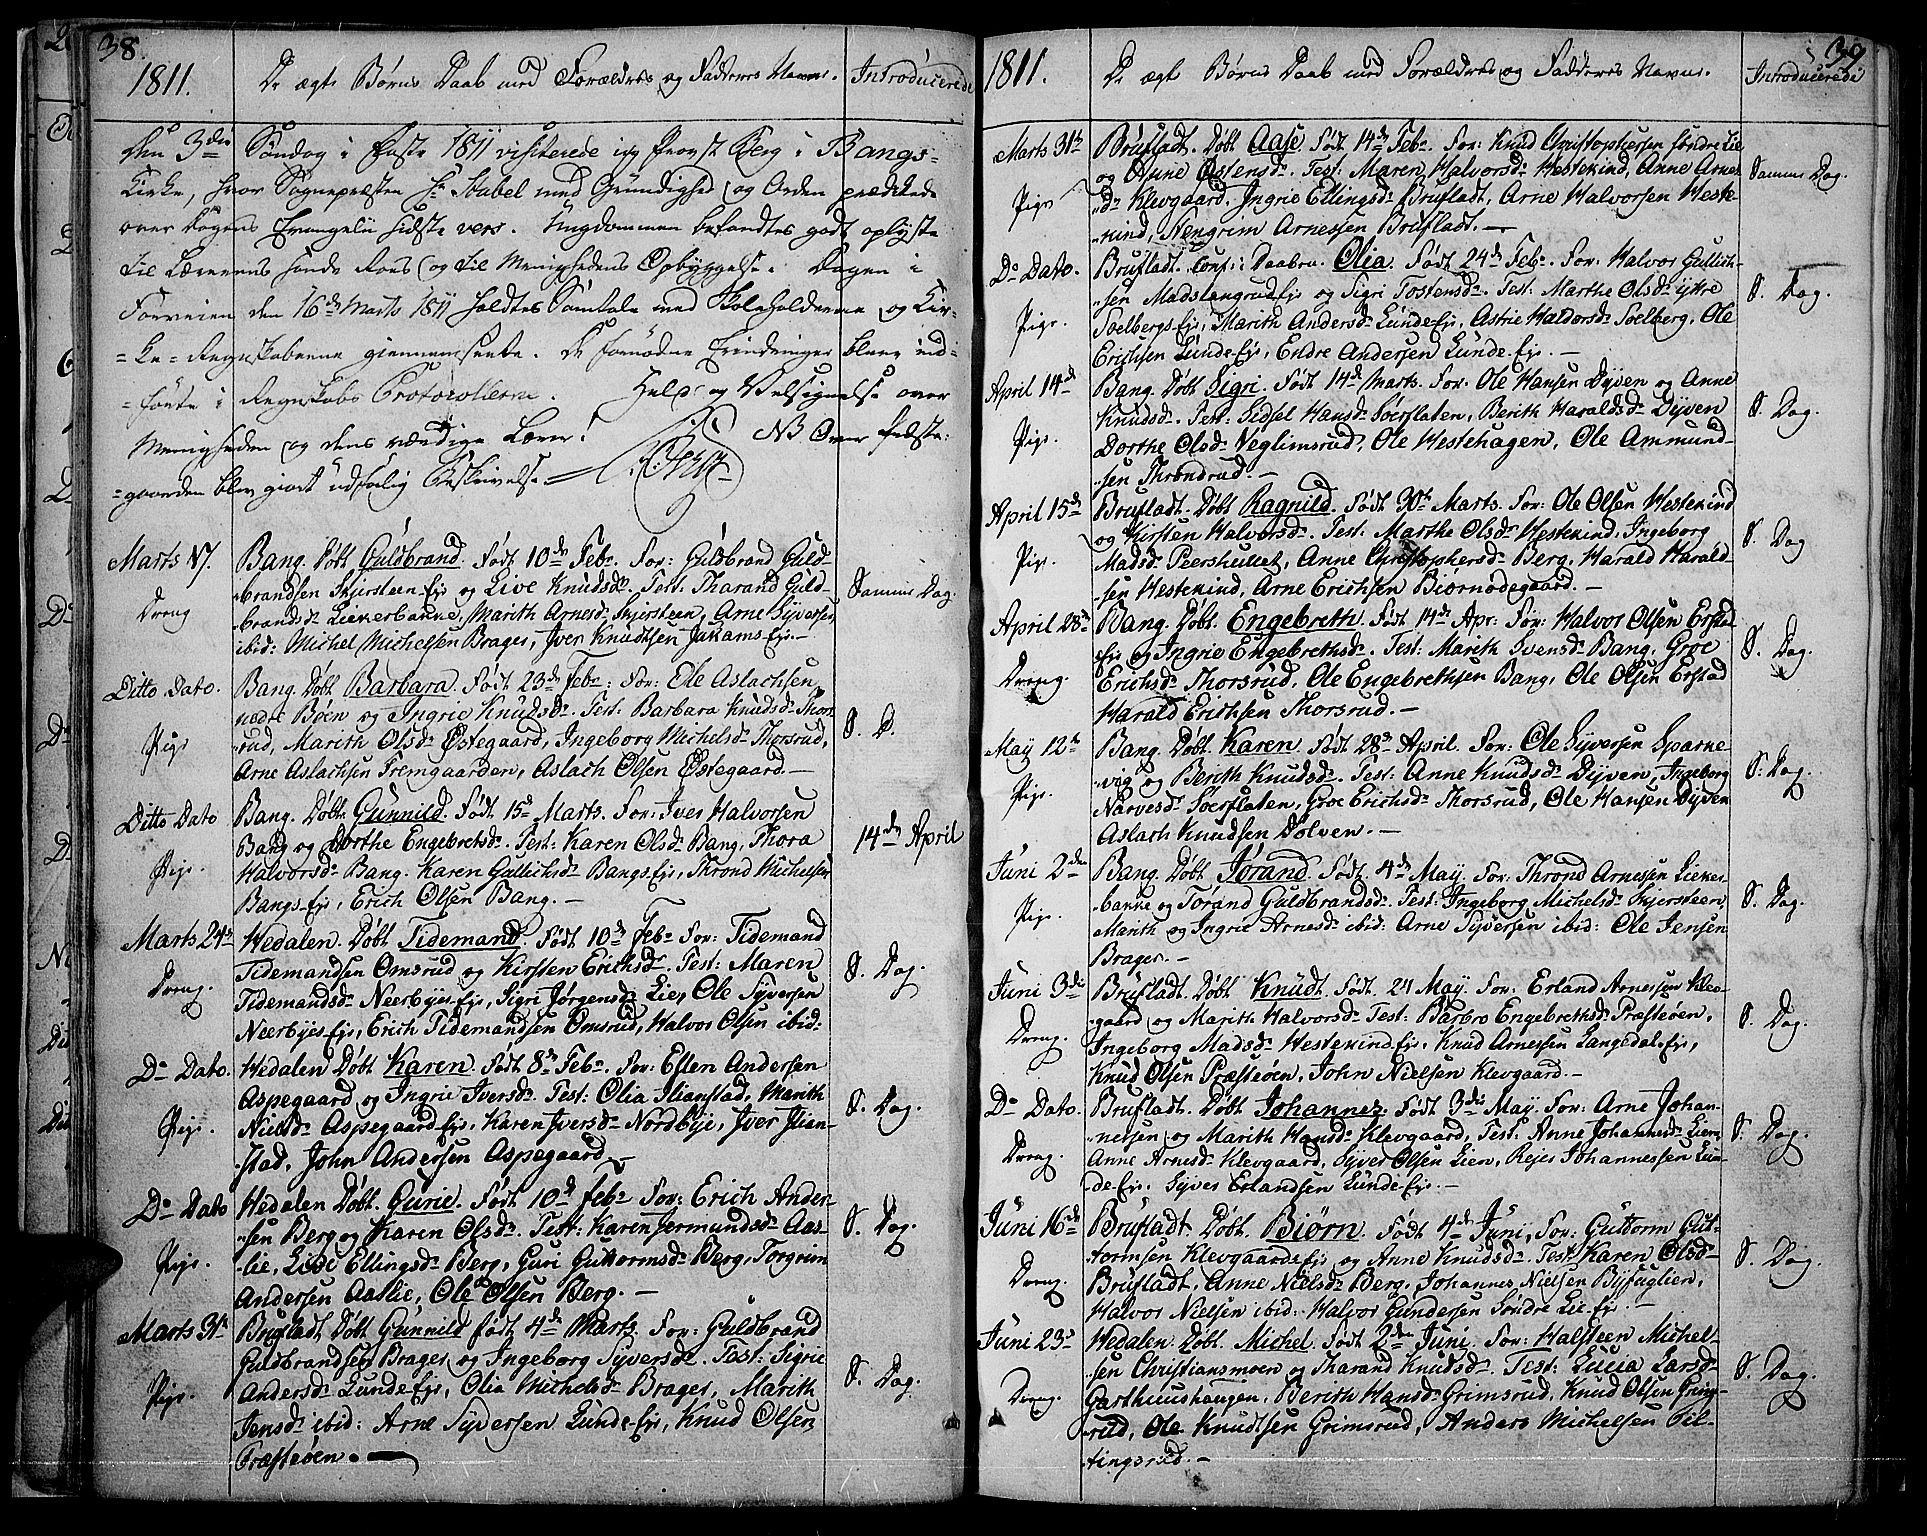 38.
1811.
De ægte Børns Daab med Forældres og Faddres Navne.
Introducerede
Den 3die Søndag i Faste 1811 visiterede jeg Provst Berg i Bangs-
Kirke, hvor Sognepræsten Hr Stabel med Grundighed og Orden prædikede
over Dagens Evangelii sidste vers. Ungdommen befandtes godt oplyste
til Lærerens sande Roes og til Menighedens Opbyggelse. Dagen i
Forveien den 16de Marts 1811 holdtes Samtale med Skoleholderne og Kir-
-ke-Regnskaberne giennemseete. De fornødne Erindringer bleve ind-
-førte i Regnskabs Protocollerne. Held og Velsignelse over
Menigheden og dens værdige Lærer! NB Over Præste-
-gaarden blev giort udførlig Beskrivelse
Marts 17. Bang. Døbt Guldbrand. Født 10de Febr. For: Guldbrand Guld-
Dreng
brandsen Skjersteen-Eje og Live Knudsdr. Test: Tharand Guld-
brandsdr Liekerbanne, Marith Arnesdr Skjersteen, Arne Syversen
ibid: Michel Michelsen Brager, Iver Knudtsen Jukams-Eje.
Samme Dag.
Ditto Dato. Bang. Døbt Barbara. Født 23de Febr: For: Ole Aslachsen
Pige
nedre Bøen og Ingrie Knudsdr. Test: Barbara Knudsdr Thors-
rud, Marith Olsdr Østegaard, Ingeborg Michelsdr Thorsrud,
Arne Aslachsen Fremgaarden, Aslach Olsen Østegaard.
S. D.
Ditto Dato Bang. Døbt. Gunnild. Født 15de Marts. For: Iver Halvorsen
Pige.
Bang og Dorthe Engebretsdr. Test: Karen Olsdr Bang, Thora
Halvorsdr Bang. Karen Gullichsdr Bangs-Eje, Thrond Michelsen
Bangs-Eje, Erich Olsen Bang.
14de April
Marts 24de Hedalen. Døbt Tidemand. Født 10de Febr For: Tidemand
Dreng.
Tidemandsen Omsrud og Kirsten Erichsdr. Test: Maren
Tidemandsdr Neerbyes-Eje, Sigri Jørgensdr Lie, Ole Syversen
Neerbyes-Eje, Erich Tidemandsen Omsrud, Halvor Olsen ibid:
S. Dag.
Do Dato. Hedalen Døbt Karen. Født 8de Febr. For: Esten Andersen
Pige.
Aspegaard og Ingrie Iversdr. Test: Olia Ilianstad, Marith
Nielsdr Aspegaard-Eje, Karen Iversdr Nordbye, Iver Ilian-
stad, John Andersen Aspegaard.
S. Dag.
Do Dato Hedalen Døbt. Gurie. Født 10de Febr For: Erich Ander-
Pige.
sen Berg og Karen Olsdr. Test: Karen Jermundsdr Aas-
lie, Live Ellingsdr Berg, Guri Guttormsdr Berg, Torgrim
Andersen Aaslie, Ole Olsen Berg.
S. Dag.
Marts 31te Brufladt Døbt Gunnild født 4de Marts. For: Guldbrand
Pige.
Guldbrandsen Brager og Ingeborg Syversdr. Test: Sigrie
Andersdr Lunde-Eje, Olia Michelsdr Brager, Marith
Jensdr ibid: Arne Syversen Lunde-Eje, Knud Olsen
Præsteøen.
S. Dag.
39
1811.
De ægte Børns Daab med Forældres og Faddres Navne.
Introducerede
Marts 31te Bruflad t. Døbt Aase. Født 14de Febr. For: Knud Christophersen søndre Lie
Pige
og Aune Ostensdr. Test: Maren Halvorsdr Hestekind, Anne Arnes-
dr Klevgaard, Ingrie Ellingsdr Brufladt, Arne Halvorsen Heste-
kind, Nengrim Arnessen Brufladt.
Samme Dag.
Do Dato. Brufladt. Conf: i Daaben. Olia. Født 24de Febr. For: Halvor Gullich-
Pige.
sen Madslangrud-Eje og Sigri Tostensdr. Test: Marthe Olsdr yttre
Soelbergs-Eje, Marith Andersdr Lunde-Eje, Astrie Haldorsdr Soelberg, Ole
Erichsen Lunde-Eje, Endre Andersen Lunde-Eje.
S. Dag.
April 14de Bang. Døbt Sigri. Født 14de Marts. For: Ole Hansen Dyven og Anne
Pige.
Knudsdr. Test: Sidsel Hansdr Soerflaten, Berith Haraldsdr Dyven
Dorthe Olsdr Veglimsrud, Ole Hestehagen, Ole Ammund-
sen Throndrud.
S. Dag.
April 15de Brufladt. Døbt Ragnild. Født 30te Marts. For: Ole Olsen Hestekind
Pige.
og Kirsten Halvorsdr. Test: Marthe Olsdr Hestekind, Ingeborg
Madsdr Peershullet, Anne Christophersdr Berg, Harald Harald-
sen Hestekind, Arne Erichsen Biørnødegaard.
S. Dag
April 28de Bang. Døbt. Engebreth. Født 14de Apr: For: Halvor Olsen Erstad
Dreng.
Eje og Ingrie Engebrethsdr. Test: Marith Svensdr Bang, Groe
Erichsdr Thorsrud, Ole Engebrethsen Bang, Ole Olsen Erstad
Harald Erichsen Thorsrud.
S. Dag.
May 12te Bang. Døbt Karen. Født 28de April. For: Ole Syversen Sparne-
Pige.
vig og Berith Knudsdr. Test: Anne Knudsdr Dyven, Ingeborg
Narvesdr Soerflaten, Groe Erichsdr Thorsrud, Ole Hansen Dyven
Aslach Knudsen Dølven.
S. Dag.
Juni 2den Bang. Døbt Jørand. Født 4de May. For: Thrond Arnessen Lieker-
Pige.
banne og Tørand Guldbrandsdr. Test: Ingeborg Michelsdr Skjersteen
Marith og Ingrie Arnesdr ibid: Arne Syversen ibid: Ole Jensen
Brager.
S. Dag.
Juni 3die Bruflad t. Døbt. Knudt. Født 21 May. For: Erland Arnessen Klev-
Dreng.
gaard og Marith Halvorsdr Test: Barbro Engebrethsdr Præsteøen,
Ingeborg Madsdr Hestekind-Eje, Knud Arnessen Langedal-Eje,
Knud Olsen Præsteøen, John Nielsen Klevgaard.
S. Dag.
Do Dato. Bruflad t. Døbt Johannes. Født 3die May. For: Arne Johan-
Dreng.
nessen og Marith Hansdr Klevgaard, Test: Anne Johannesdr Lien,
Anne Arnesdr Klevgaard, Syver Olsen Lien, Rejer Johannessen Lun-
de-Eje. Syver Erlandsen Lunde-Eje.
S. Dag.
Juni 16de Bruflad t. Døbt. Biørn. Født 4de Juni, For: Guttorm Gut-
Dreng.
tormsen Klevgaards-Eje og Anne Knudsdr. Test: Karen Olsdr
Bruflad t, Anne Nielsdr Berg, Johannes Nielsen Byfuglien,
Halvor Nielsen ibid: Halvor Gundersen Søndre Lie-Eje.
S. Dag.
Juni 23de Hedalen. Døbt. Michel. Født 2den Juni. For: Halsteen Michel-
Dreng.
sen Christiansmoen og Tharand Knudsdr. Test: Lucia Larsdr
Garthuushaugen, Berith Hansdr Grimsrud, Knud Olsen Grims-
rud, Ole Knudtsen Grimsrud, Anders Michelsen Til-
tingsrud.
S. Dag.